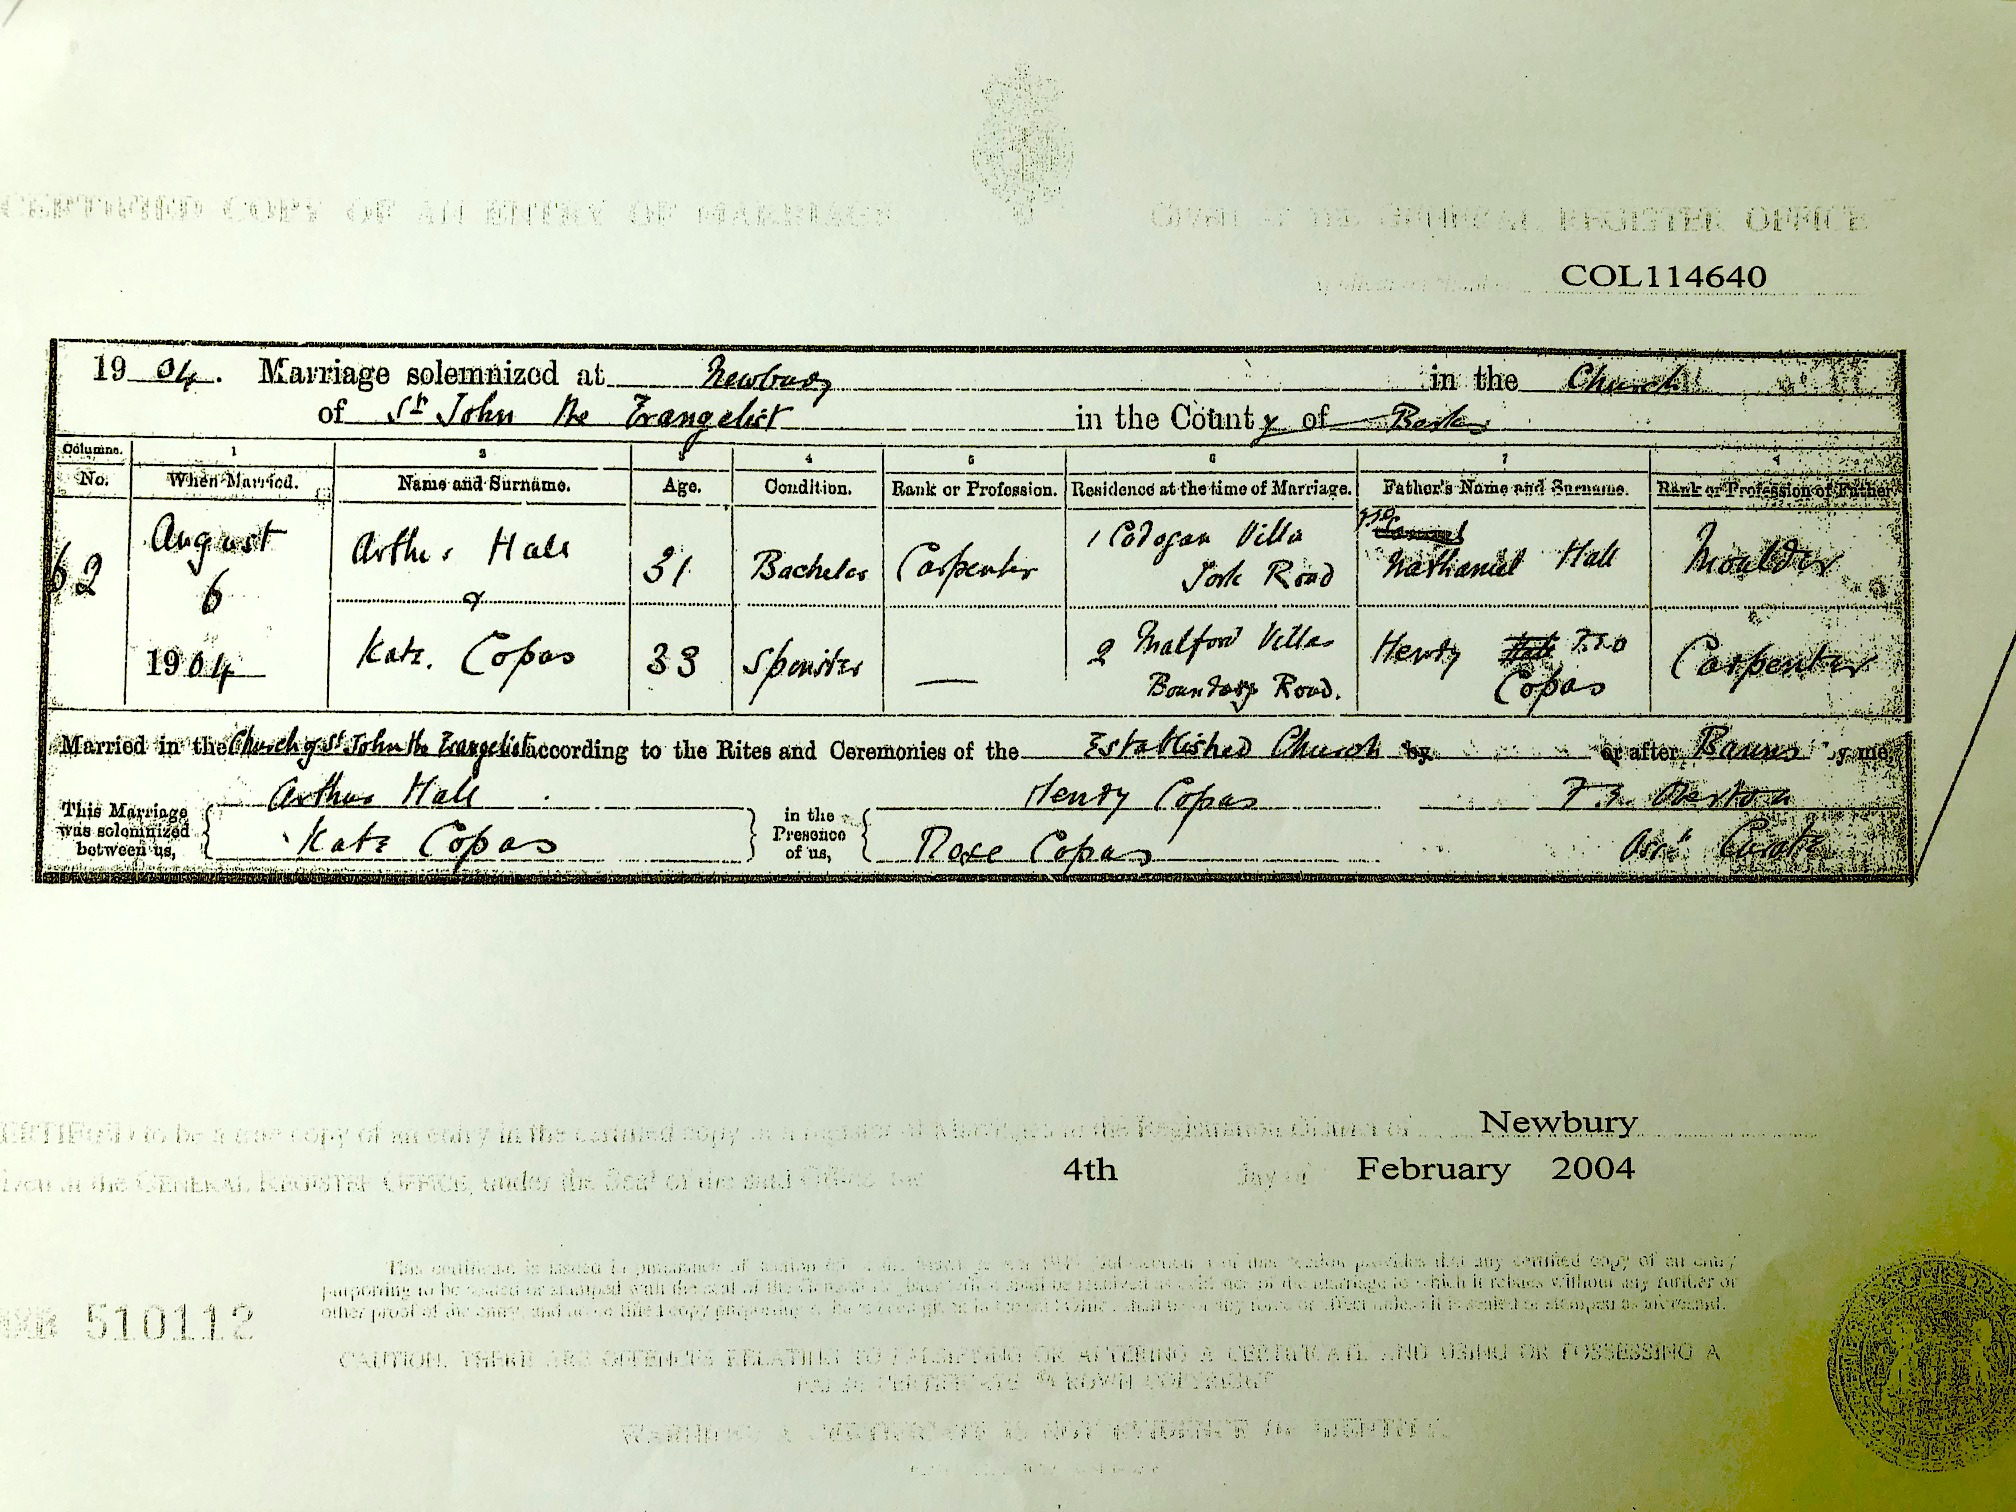 CERTIFIED COPY OF AN ENTRY OF MARRIAGE
GIVEN AT THE GENERAL REGISTER OFFICE
COL114640
1904. Marriage solemnized at Newbury in the Church
of St John the Evangelist in the County of Berks
Columns. 1 2 3 4 5 6 7 8
No. When Married. Name and Surname. Age. Condition. Rank or Profession. Residence at the time of Marriage. Father's Name and Surname. Rank or Profession of Father
62 August 6 1904
Arthur Hall 31 Bachelor Carpenter 1 Cadogan Villa York Road Nathaniel Hall Moulder
&
Kate Copas 33 Spinster — 2 Malford Villas Boundary Road. Henry Copas Carpenter
Married in the Church of St John the Evangelist according to the Rites and Ceremonies of the Established Church by or after Banns by me,
This Marriage was solemnized between us, Arthur Hall Kate Copas
in the Presence of us, Henry Copas Rose Copas
Curate
CERTIFIED to be a true copy of an entry in the certified copy of a register of Marriages in the Registration District of Newbury
Given at the GENERAL REGISTER OFFICE, under the Seal of the said Office, the 4th day of February 2004
510112
CAUTION: THERE ARE OFFENCES RELATING TO FALSIFYING OR ALTERING A CERTIFICATE AND USING OR POSSESSING A
FALSE CERTIFICATE ©CROWN COPYRIGHT
WARNING: A CERTIFICATE IS NOT EVIDENCE OF IDENTITY.